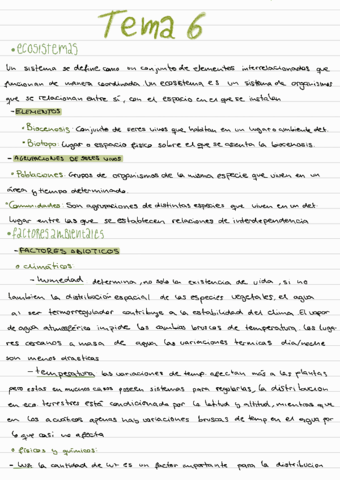 Tema 6
• ecosistemas
Un sistema se define como un conjunto de elementos interrelacionados que
funcionan de manera coordinada. Un ecosistema es un sistema de organismos
que se relacionan entre sí, con el espacio en el que se instalan
- ELEMENTOS
• Biocenosis: Conjunto de seres vivos que habitan en un lugar o ambiente det.
• Biotopo: lugar o espacio físico sobre el que se asienta la biocenosis.
- AGRUPACIONES DE SERES VIVOS
• Poblaciones: Grupos de organismos de la misma especie que viven en un
área y tiempo determinado.
• Comunidades: Son agrupaciones de distintas especies que viven en un det
lugar entre las que se establecen relaciones de interdependencia
• factores ambientales
- FACTORES ABIOTICOS
o climáticos
- humedad determina, no solo la existencia de vida, si no
tambien la distribución espacial de las especies vegetales, el agua
al ser termorregulador contribuye a la estabilidad del clima. El vapor
de agua atmosférico impide los cambios bruscos de temperatura. Los luga
res cercanos a masa de agua las variaciones termicas dia/noche
son menos drasticas
- temperatura las variaciones de temp. afectan más a las plantas
pero estas en muchos casos poseen sistemas para regularlas, la distribucion
en eco. terrestres está condicionada por la latitud y altitud, mientras que
en los acuáticos apenas hay variaciones bruscas de temp en el agua por
lo que casi no afecta
o físicos y químicos:
- luz la cantidad de luz es un factor importante para la distribucion